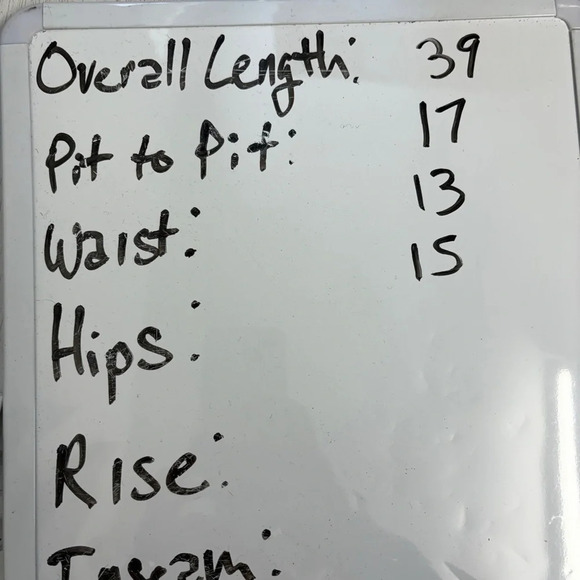 Overall Length: 39
Pit to Pit: 17
Waist: 13
Hips: 15
Rise:
Inseam: